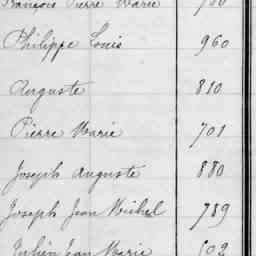 François Pierre Marie
Philippe Louis 960
Auguste 810
Pierre Marie 701
Joseph Auguste 880
Joseph Jean Michel 789
Julien Jean Marie 502